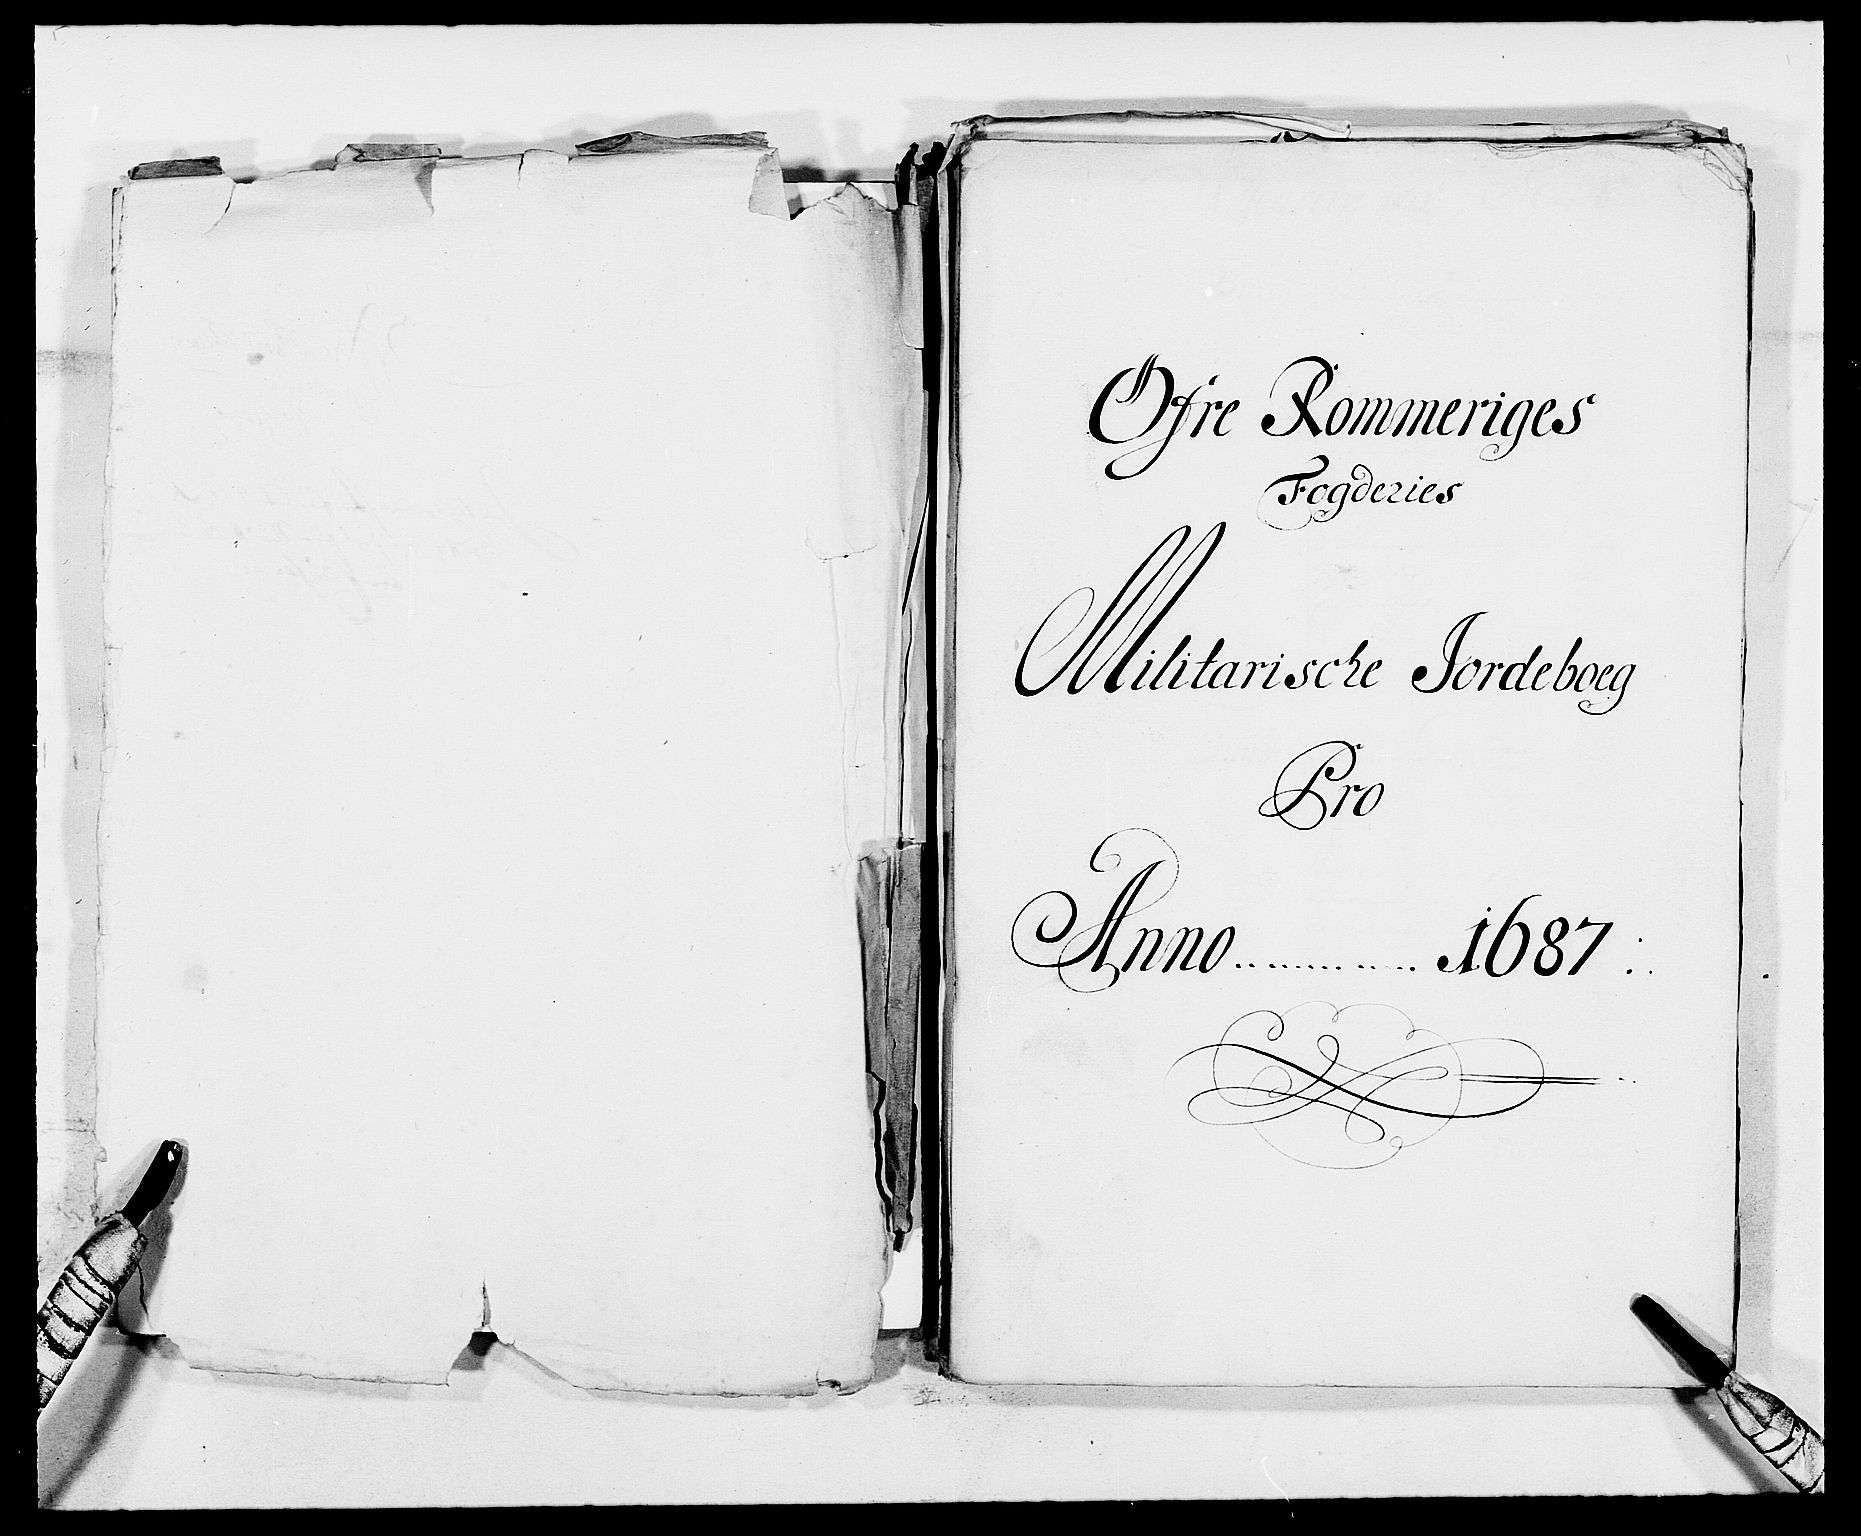 Ofre Rommeriges
Fogderies
Militarische Jordeboeg
Pro
Anno ......... 1687 :.